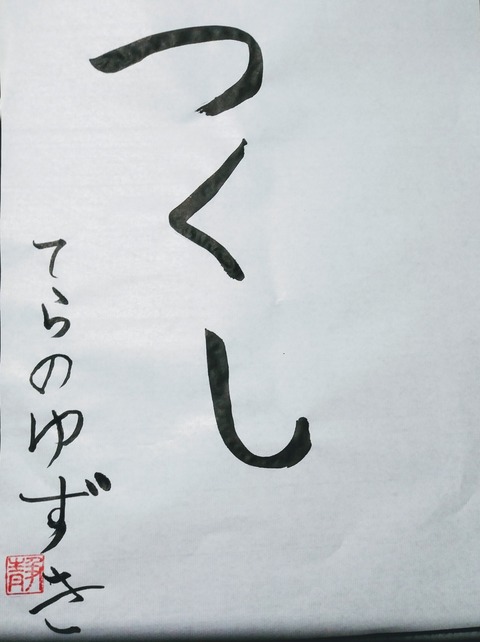 つくし
てらのゆずき
靜